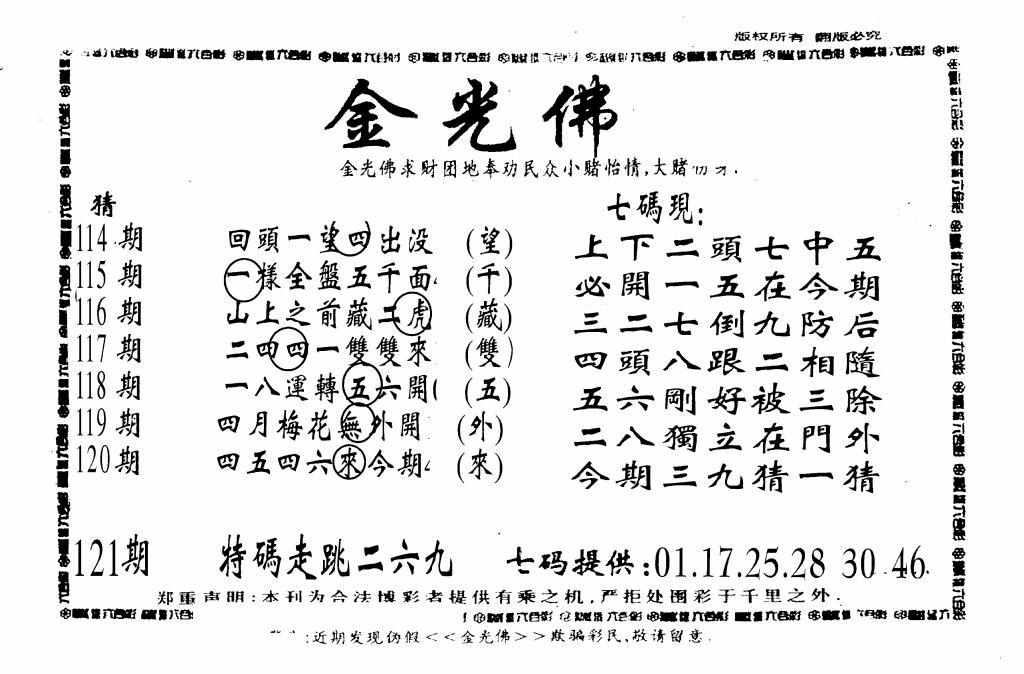 版权所有 翻版必究
金光佛
金光佛求财团地奉劝民众小赌怡情,大赌
猜
七碼現:
114期 回頭一望四出没 (望)
115期 一樣全盤五千面 (千)
116期 山上之前藏二虎 (藏)
117期 二四四一雙雙來 (雙)
118期 一八運轉五六開 (五)
119期 四月梅花無外開 (外)
120期 四五四六來今期 (來)
上下二頭七中五
必開一五在今期
三二七倒九防后
四頭八跟二相隨
五六剛好被三除
二八獨立在門外
今期三九猜一猜
121期 特碼走跳二六九 七码提供:01.17.25.28 30.46.
郑重声明:本刊为合法博彩者提供有乘之机,严拒处围彩于千里之外.
:近期发现伪假<<金光佛>>欺骗彩民,敬请留意.